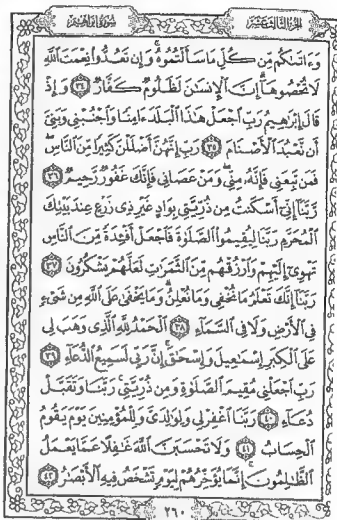 الجزء الثالث عشر سورة إبراهيم
وَءَاتَىٰكُم مِّن كُلِّ مَا سَأَلْتُمُوهُ ۚ وَإِن تَعُدُّوا۟ نِعْمَتَ ٱللَّهِ
لَا تُحْصُوهَآ ۗ إِنَّ ٱلْإِنسَٰنَ لَظَلُومٌ كَفَّارٌ ٣٤ وَإِذْ
قَالَ إِبْرَٰهِيمُ رَبِّ ٱجْعَلْ هَٰذَا ٱلْبَلَدَ ءَامِنًا وَٱجْنُبْنِى وَبَنِىَّ
أَن نَّعْبُدَ ٱلْأَصْنَامَ ٣٥ رَبِّ إِنَّهُنَّ أَضْلَلْنَ كَثِيرًا مِّنَ ٱلنَّاسِ ۖ
فَمَن تَبِعَنِى فَإِنَّهُۥ مِنِّى ۖ وَمَنْ عَصَانِى فَإِنَّكَ غَفُورٌ رَّحِيمٌ ٣٦
رَّبَّنَآ إِنِّىٓ أَسْكَنتُ مِن ذُرِّيَّتِى بِوَادٍ غَيْرِ ذِى زَرْعٍ عِندَ بَيْتِكَ
ٱلْمُحَرَّمِ رَبَّنَا لِيُقِيمُوا۟ ٱلصَّلَوٰةَ فَٱجْعَلْ أَفْـِٔدَةً مِّنَ ٱلنَّاسِ
تَهْوِىٓ إِلَيْهِمْ وَٱرْزُقْهُم مِّنَ ٱلثَّمَرَٰتِ لَعَلَّهُمْ يَشْكُرُونَ ٣٧
رَبَّنَآ إِنَّكَ تَعْلَمُ مَا نُخْفِى وَمَا نُعْلِنُ ۗ وَمَا يَخْفَىٰ عَلَى ٱللَّهِ مِن شَىْءٍ
فِى ٱلْأَرْضِ وَلَا فِى ٱلسَّمَآءِ ٣٨ ٱلْحَمْدُ لِلَّهِ ٱلَّذِى وَهَبَ لِى
عَلَى ٱلْكِبَرِ إِسْمَٰعِيلَ وَإِسْحَٰقَ ۚ إِنَّ رَبِّى لَسَمِيعُ ٱلدُّعَآءِ ٣٩
رَبِّ ٱجْعَلْنِى مُقِيمَ ٱلصَّلَوٰةِ وَمِن ذُرِّيَّتِى ۚ رَبَّنَا وَتَقَبَّلْ
دُعَآءِ ٤٠ رَبَّنَا ٱغْفِرْ لِى وَلِوَٰلِدَىَّ وَلِلْمُؤْمِنِينَ يَوْمَ يَقُومُ
ٱلْحِسَابُ ٤١ وَلَا تَحْسَبَنَّ ٱللَّهَ غَٰفِلًا عَمَّا يَعْمَلُ
ٱلظَّٰلِمُونَ ۚ إِنَّمَا يُؤَخِّرُهُمْ لِيَوْمٍ تَشْخَصُ فِيهِ ٱلْأَبْصَٰرُ ٤٢
٢٦٠